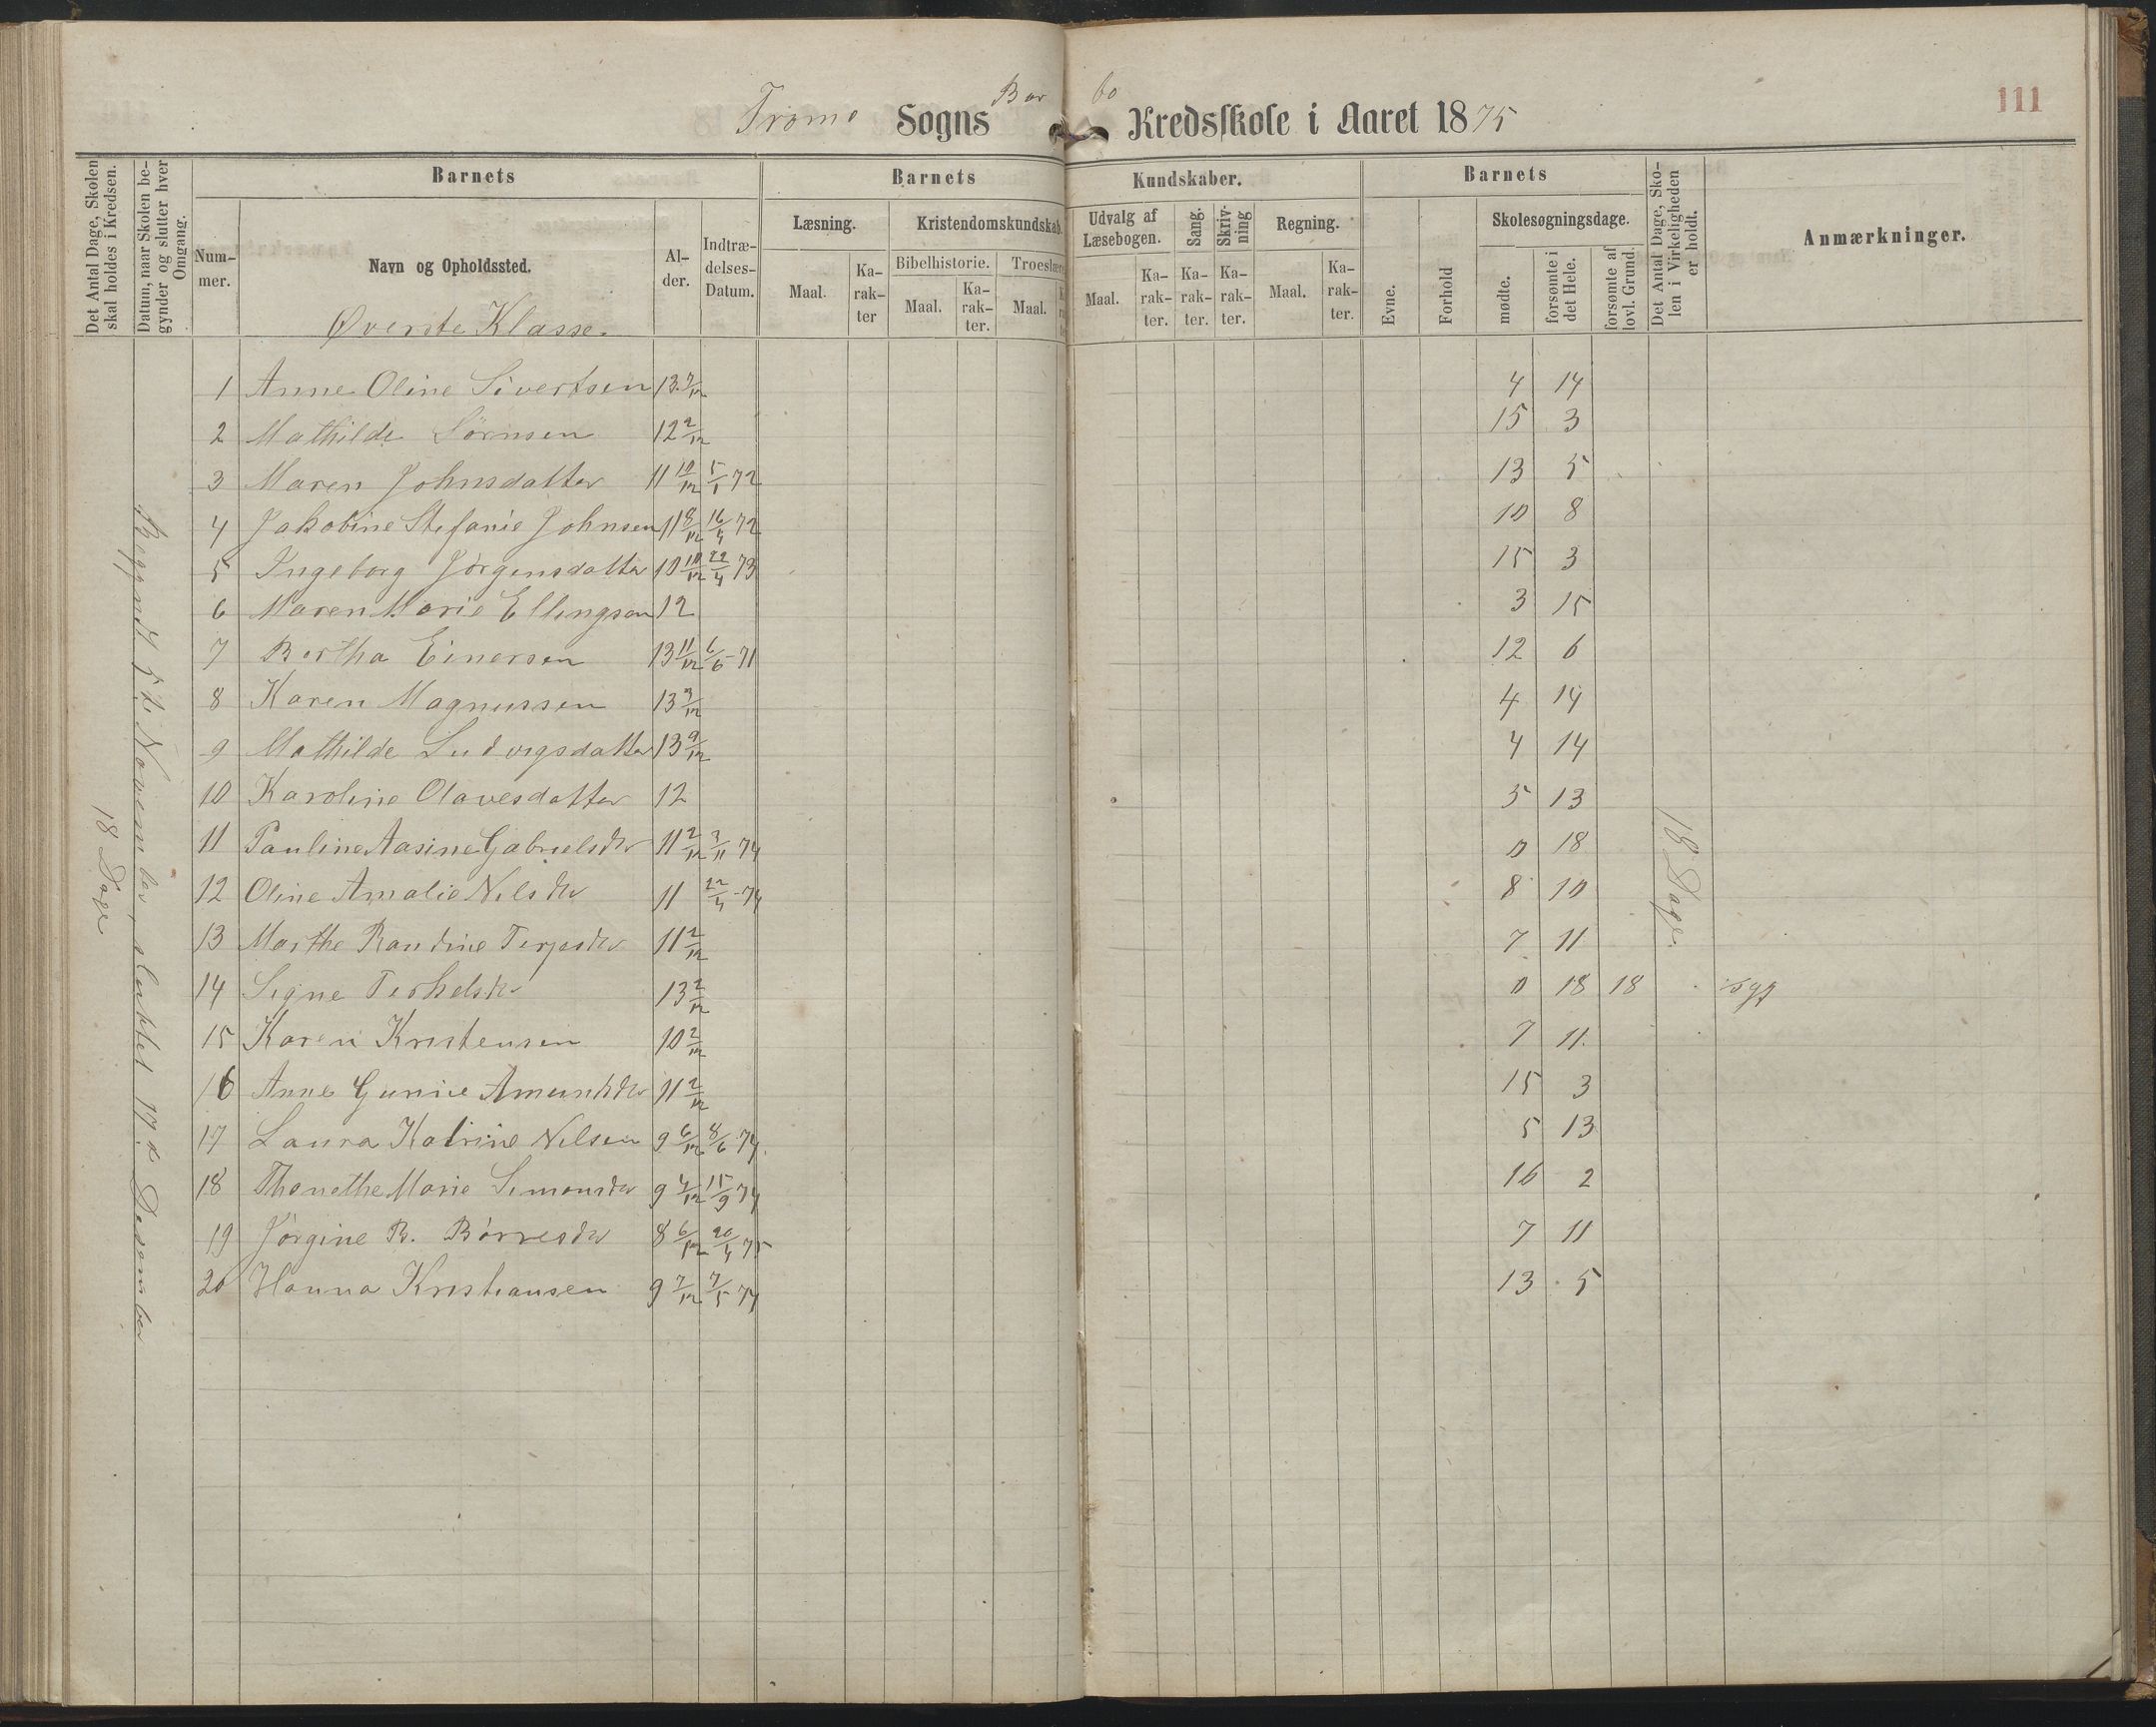 111
Tromø Sogns Bar bo Kredsskole i Aaret 1875
Det Antal Dage, Skolen skal holdes i Kredsen.
Datum, naar Skolen begynder og slutter hver Omgang.
Barnets
Nummer.
Navn og Opholdssted.
Alder.
Indtrædelses-Datum.
Barnets Kundskaber.
Læsning.
Maal.
Karakter
Kristendomskundskab.
Bibelhistorie.
Maal.
Karakter.
Troeslære
Maal.
Udvalg af Læsebogen.
Maal.
Karakter.
Sang.
Karakter.
Skrivning
Karakter.
Regning.
Maal.
Karakter.
Barnets
Evne.
Forhold
Skolesøgningsdage.
mødte.
forsømte i det Hele.
forsømte af lovl. Grund.
Det Antal Dage, Skolen i Virkeligheden er holdt.
Anmærkninger.
Øverste Klasse.
1 Anne Oline Sivertsen 13 7/12 4 14
2 Mathilde Sørnsen 12 2/12 15 3
3 Maren Johnsdatter 11 10/12 5/1 72 13 5
4 Jakobine Stefanie Johnsen 11 8/12 16/4 72 10 8
5 Ingeborg Jørgensdatter 10 10/12 22/4 73 15 3
6 Maren Marie Ellingsen 12 3 15
7 Bertha Einersen 13 11/12 6/6-71 12 6
8 Karen Magnussen 13 9/12 4 14
9 Mathilde Ludvigsdatter 13 9/12 4 14
10 Karoline Olavesdatter 12 5 13
11 Pauline Aasine Gabrielsdtr 11 2/12 3/11 74 0 18
12 Oline Amalie Nilsdtr 11 22/4-74 8 10
13 Marthe Randine Terjesdtr 11 2/12 7 11
14 Signe Terkelsdtr 13 2/12 0 18 18 syg
15 Karen Kristensen 10 2/12 7 11.
16 Anne Gunnie Amundsdtr 11 2/12 15 3
17 Laura Katrine Nilsen 9 6/12 8/6 74. 5 13
18 Thonethe Marie Simonsdtr 9 4/12 15/9 74 16 2
19 Jørgine B. Børresdtr 8 6/12 20/4 75 7 11
20 Hanna Kristiansen 9 7/12 7/5 74 13 5
18 Dage
Begyndt 5te November, sluttet 17de Desember
18 Dage.